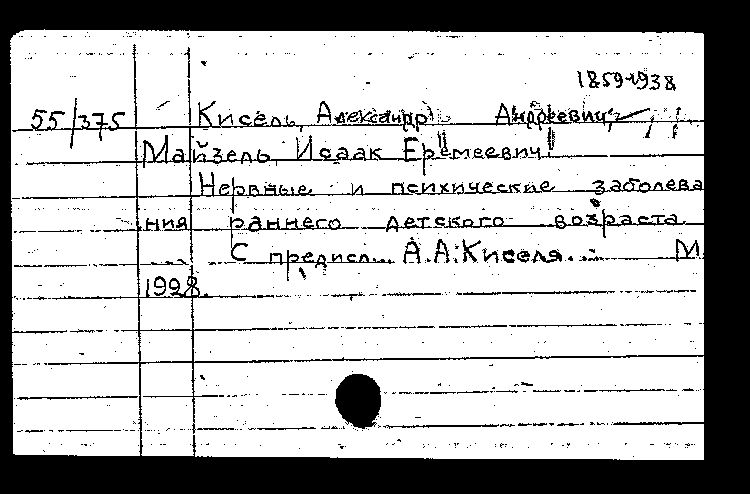 1859-1938
55/375 Кисель, Александр Андреевич,
Майзель, Исаак Еремеевич
Нервные и психические заболева
ния раннего детского возраста.
С предисл. А.А. Киселя. М.
1928.